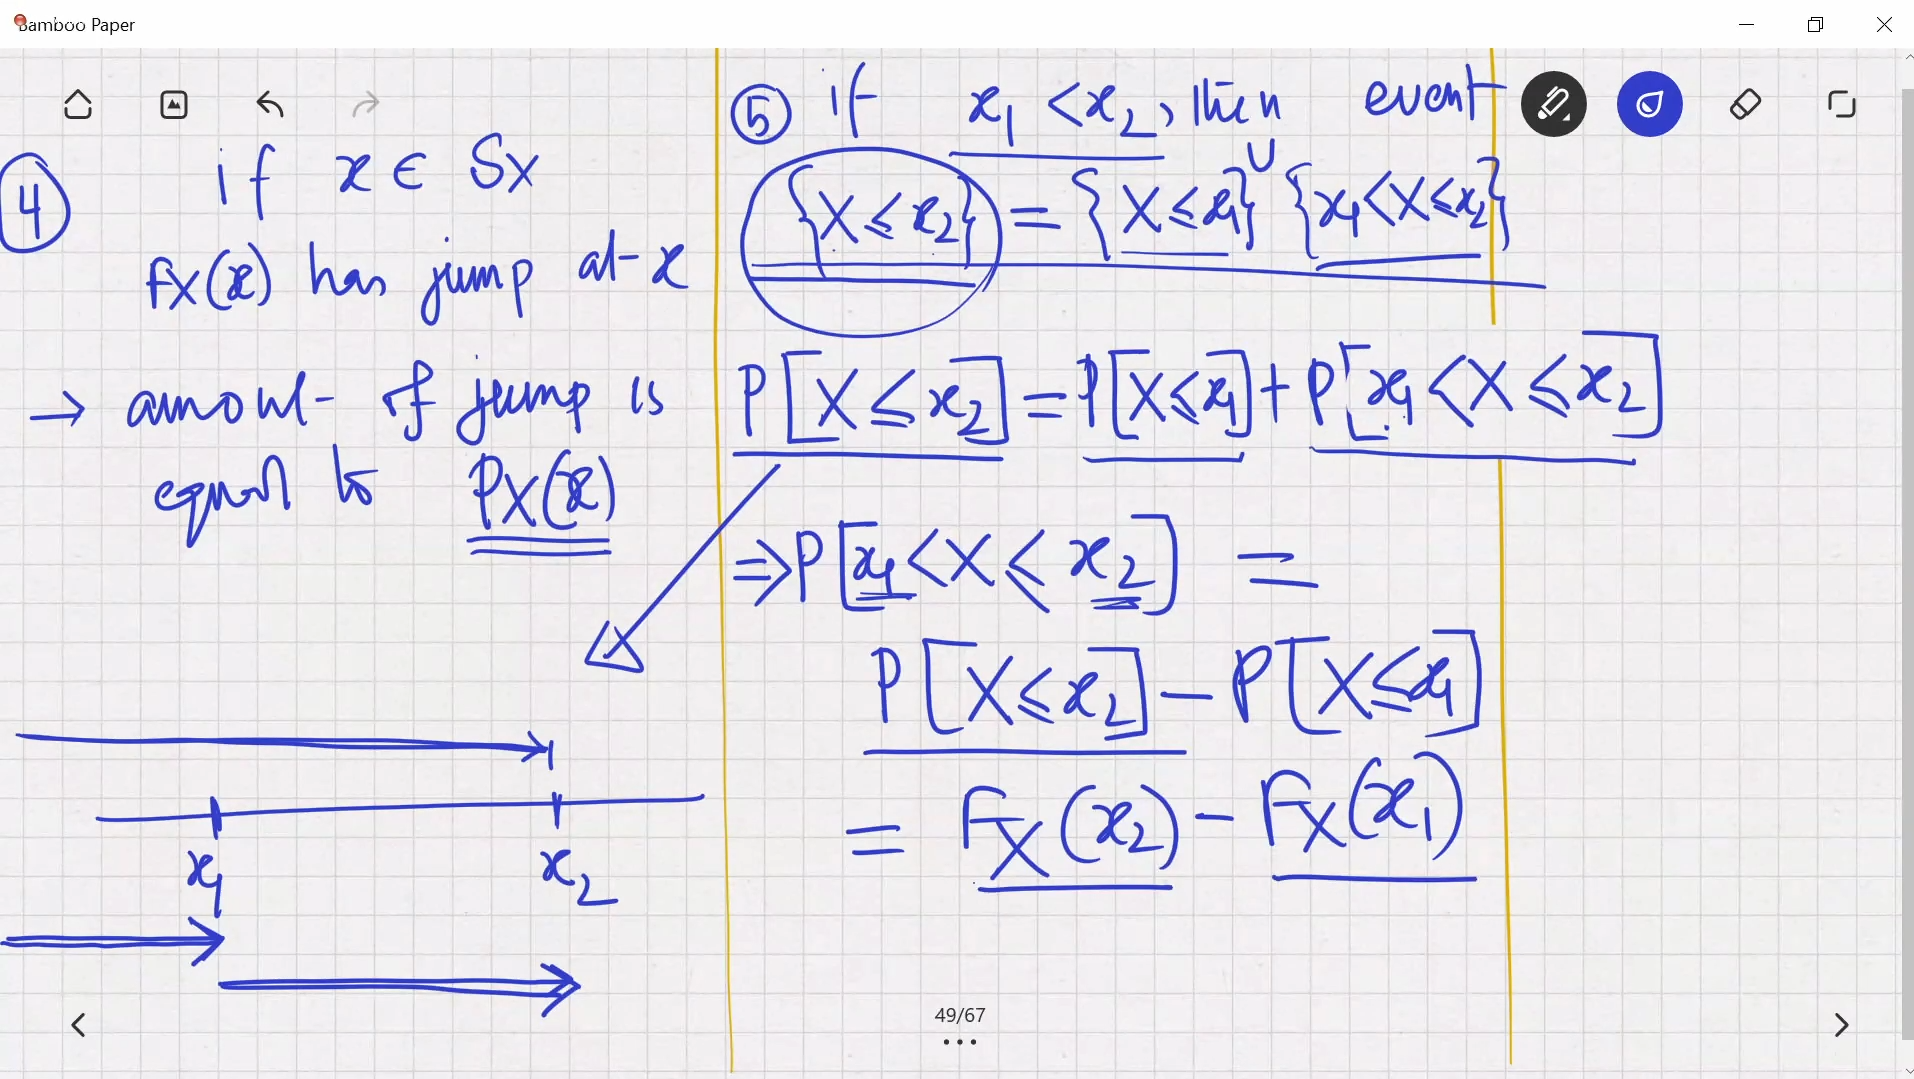 Bamboo Paper
④ if x ∈ Sx
Fx(x) has jump at x
→ amount of jump is
equal to Px(x)
x1 x2
⑤ if x1 < x2, then event
{X ≤ x2} = {X ≤ x1} ∪ {x1 < X ≤ x2}
P[X ≤ x2] = P[X ≤ x1] + P[x1 < X ≤ x2]
⇒ P[x1 < X ≤ x2] =
P[X ≤ x2] − P[X ≤ x1]
= Fx(x2) − Fx(x1)
49/67